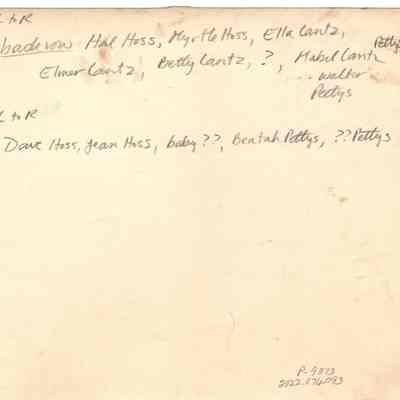 L to R
back row Hal Hoss, Myrtle Hoss, Ella Lantz, Pettys
Elmer Lantz, Betty Lantz, ?, Mabel Lantz
walter
Pettys
L to R
Dave Hoss, Jean Hoss, baby ??, Beulah Pettys, ?? Pettys
P-9073